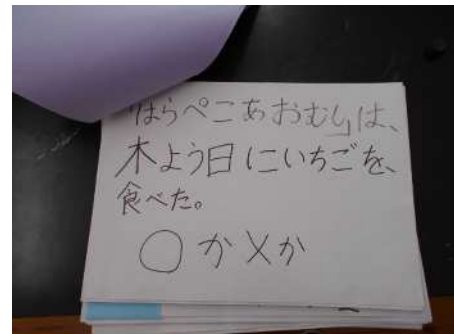 「はらぺこあおむし」は、
木よう日にいちごを、
食べた。
○か×か